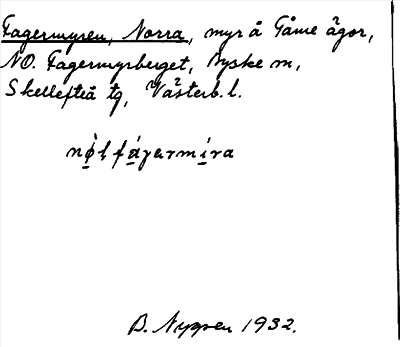 Fagermyren, Norra, myr å Gåme ägor,
NO. Fagermyrberget, Byske sn,
Skellefteå tg, Västerb. l.
nø̀ḷ fágermíra
B. Nygren 1932.